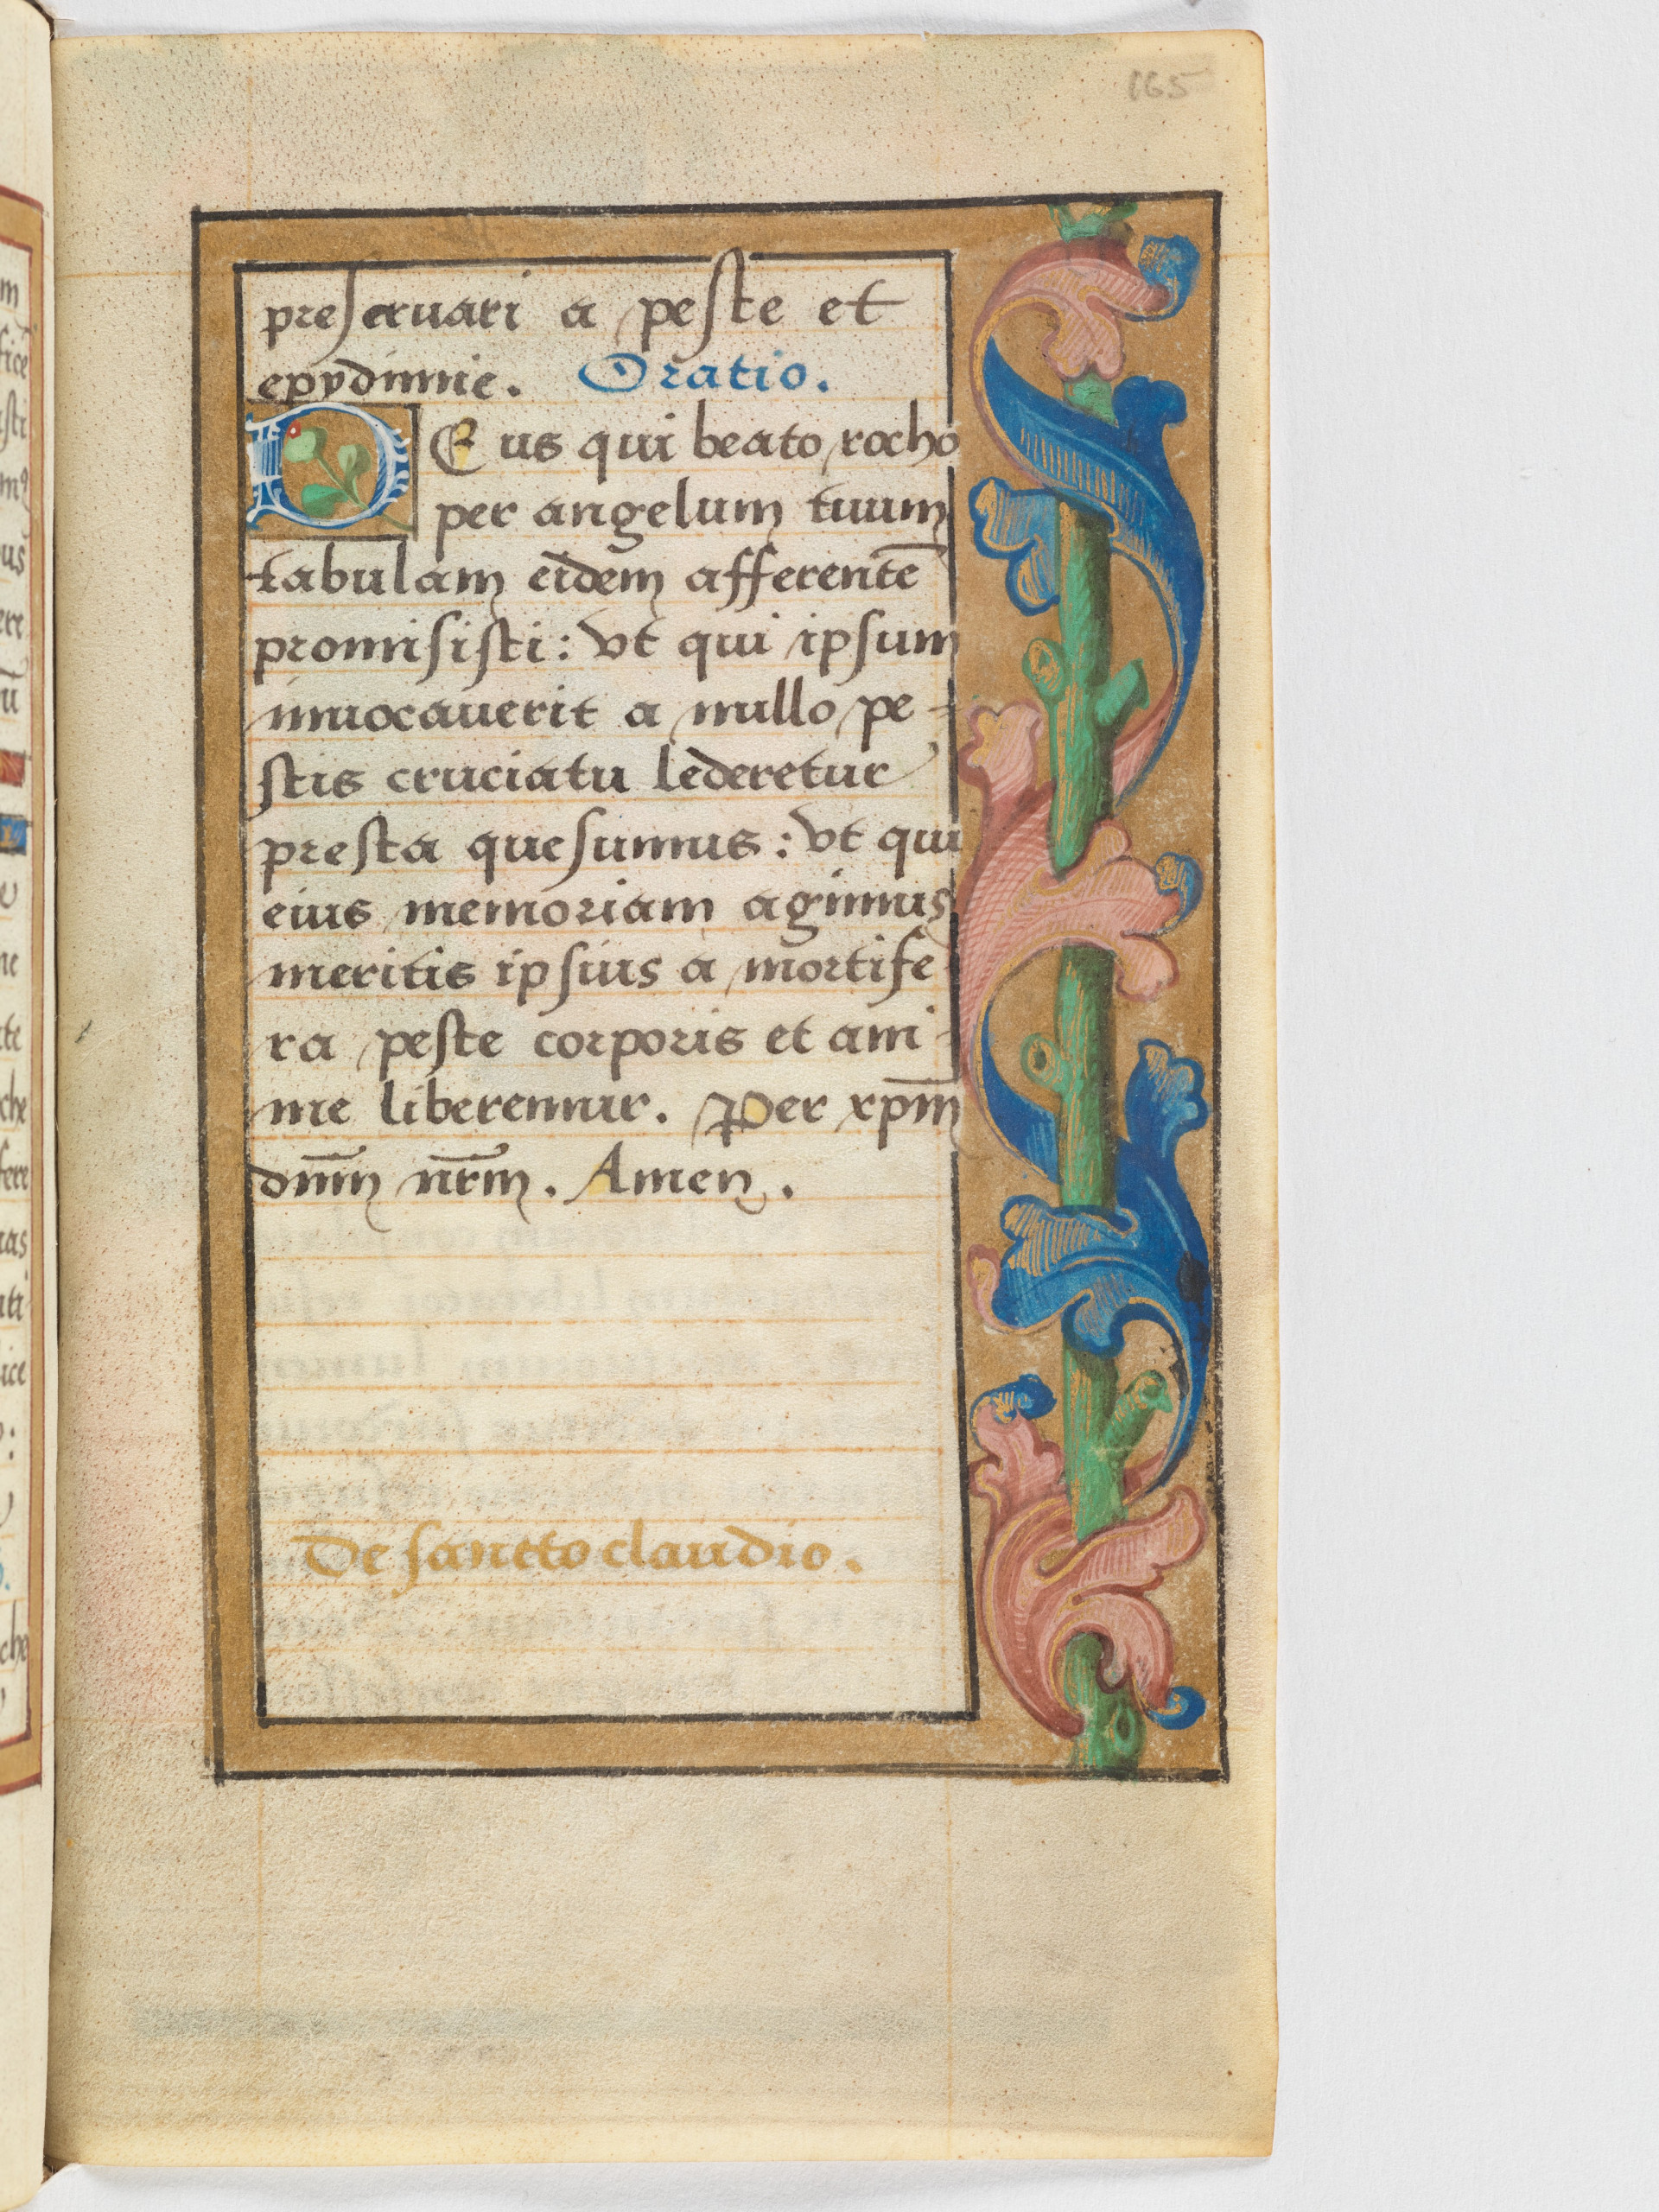 165
preseruari a peste et
epydimie. Oratio.
DEus qui beato rocho
per angelum tuum
tabulam eidem afferentē
promisisti: vt qui ipsum
inuocauerit a nullo pe-
stis cruciatu lederetur
presta quesumus: vt qui
eius memoriam agimus
meritis ipsius a mortife
ra peste corporis et ani-
me liberemur. Per xp̄m
dn̄m nr̄m. Amen.
De sancto claudio.